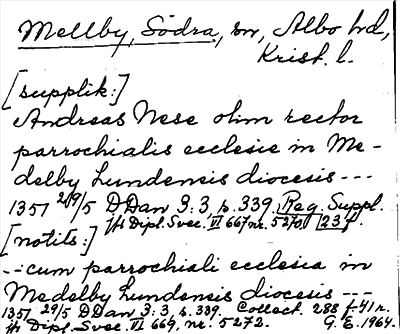 Mellby, Södra, sn, Albo hd,
Krist. l.
[supplik:]
Andreas Nese olim rector
parrochialis ecclesie in Me-
delby Lundensis diocesis ---
1357 29/5 DDan 3:3 s. 339. Reg. Suppl.
Jfr Dipl. Svec. VI 667 nr. 5270
[notits:]
--cum parrochiali ecclesia in
Medelby Lundensis diocesis ---
1357 29/5 DDan 3:3 s. 339. Collect. 288 f. 41 r.
Jfr Dipl. Svec. VI 669, nr. 5272. G.E. 1964.